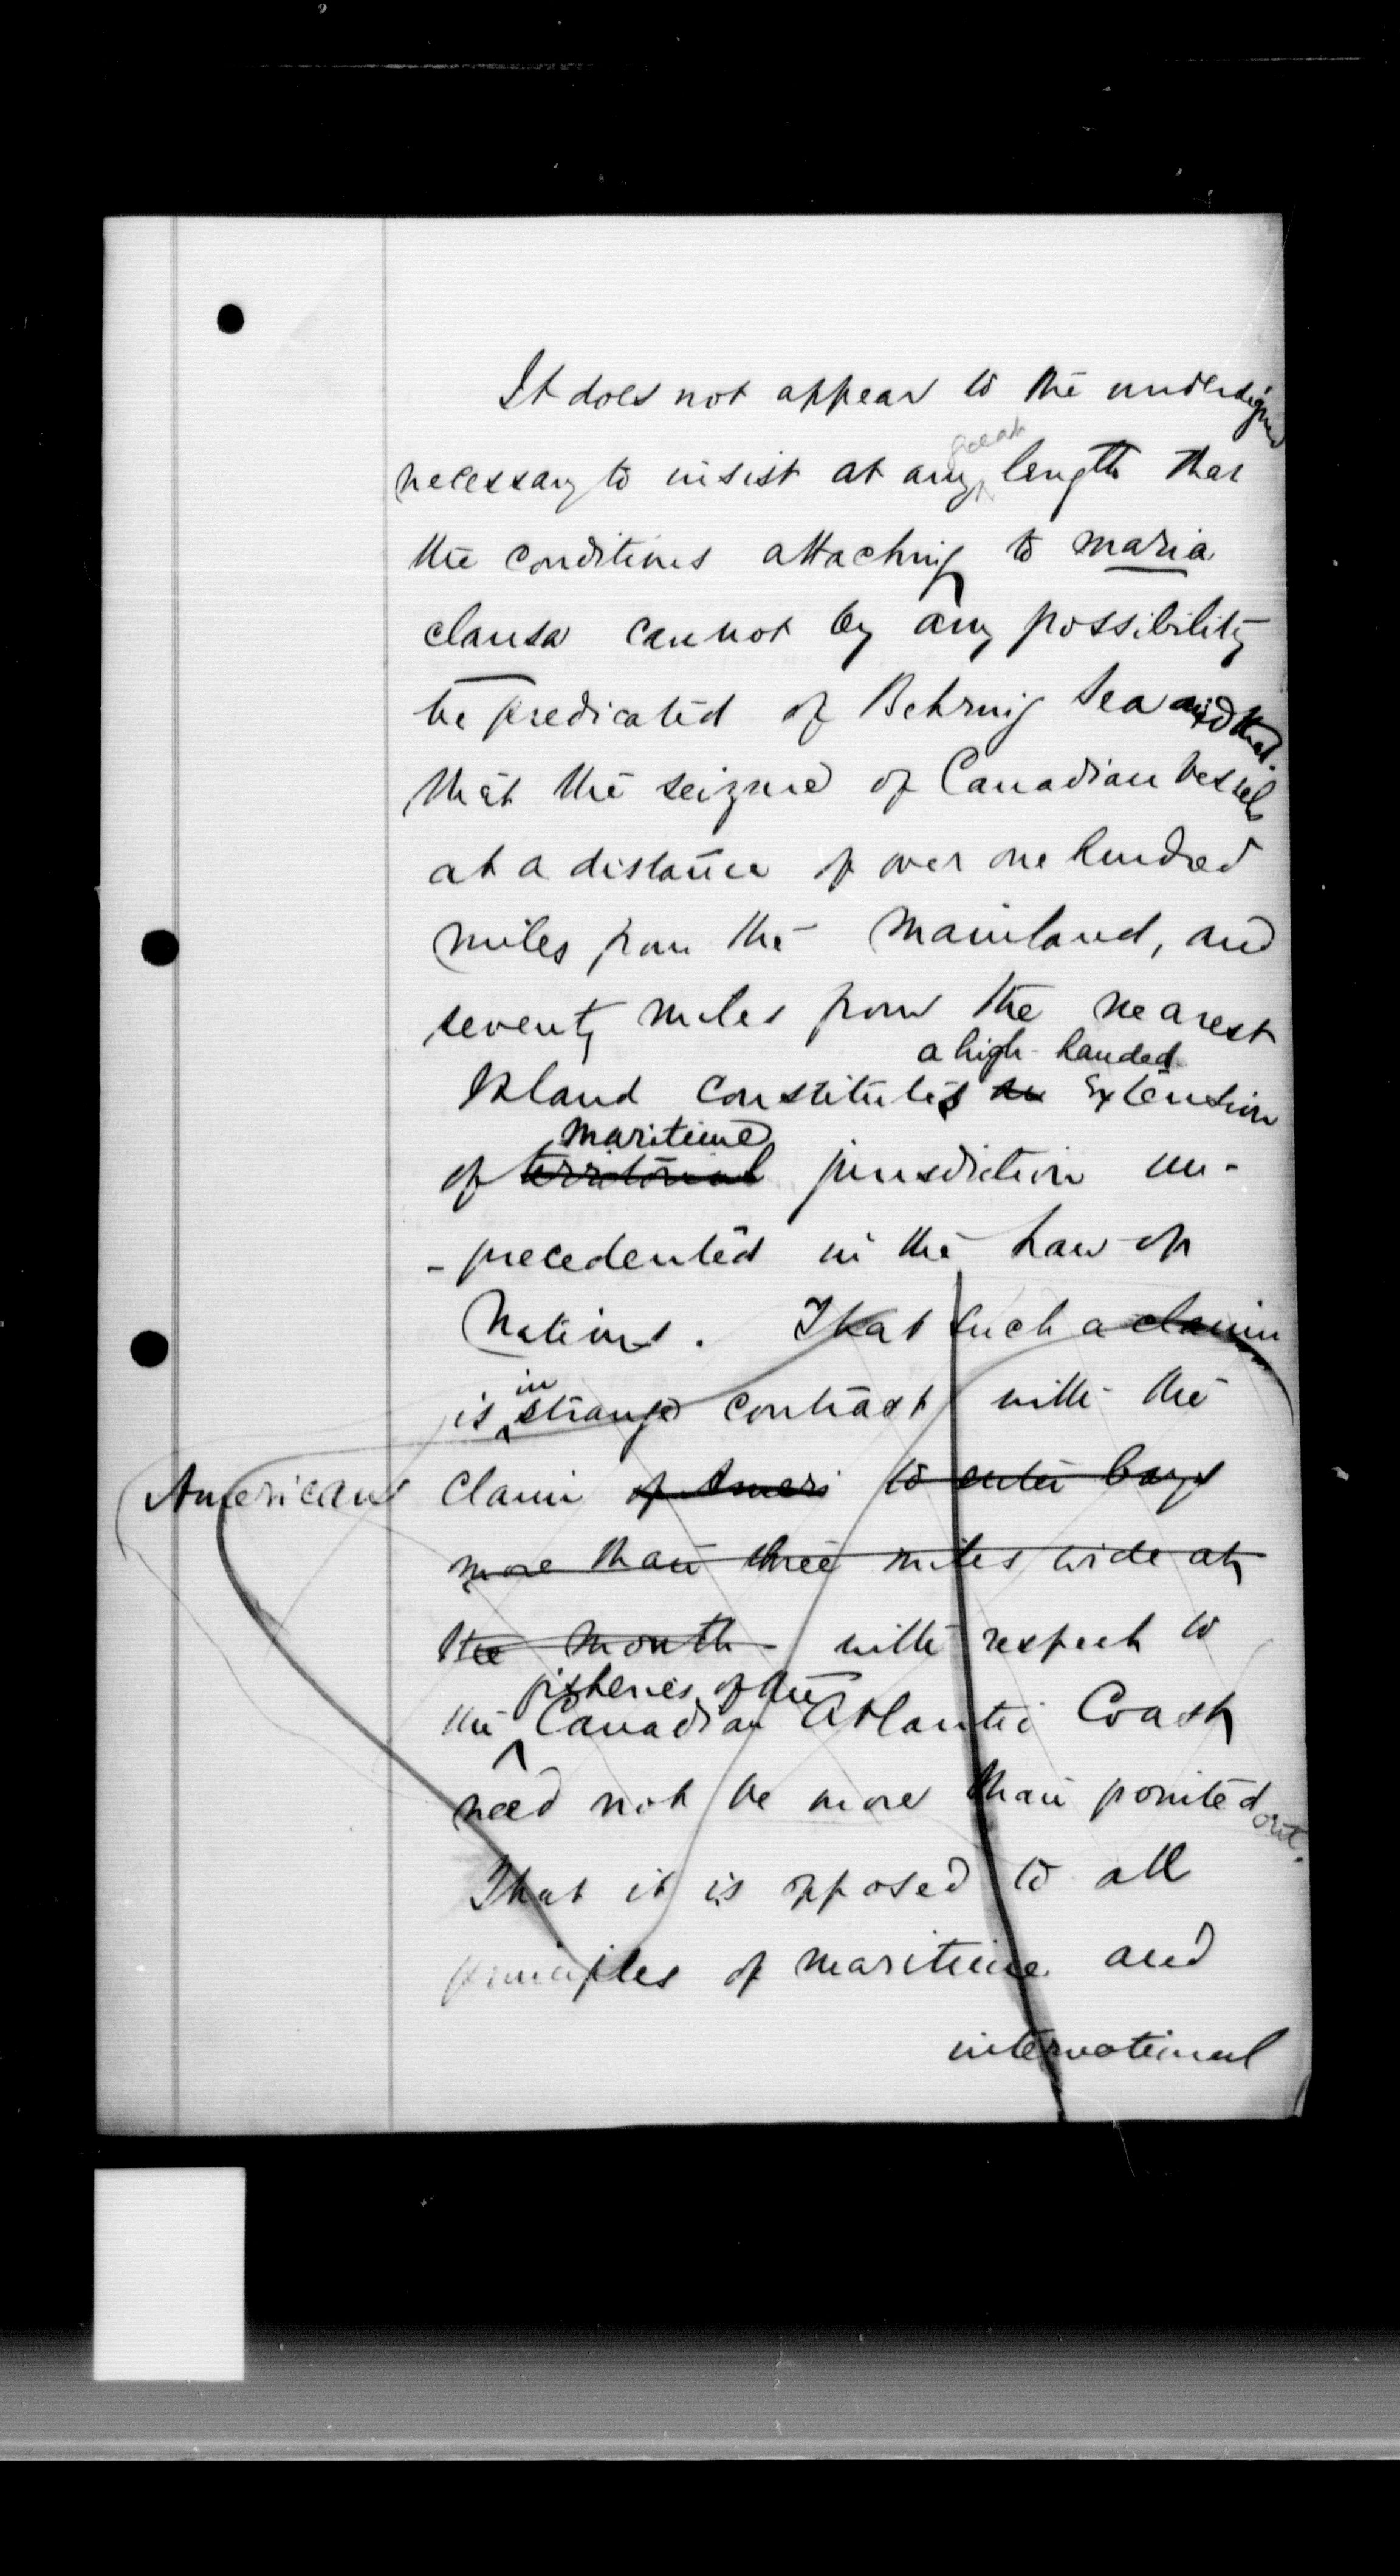 It does not appear to the undersigned
great
necessary to insist at any length that
the conditions attaching to maria
clausa cannot by any possibility
be predicated of Behring Sea and that
that the seizure of Canadian vessels
at a distance of over one hundred
miles from the mainland, and
seventy miles from the nearest
a high-handed
Island constitutes an extension
maritime
of territorial jurisdiction un-
-precedented in the Law of
Nations. That such a claim
in
is strange contrast with the
American claim of Ameri to enter bays
more than three miles wide at
the mouth - with respect to
fisheries of the
the Canadian Atlantic Coast
need not be more than pointed out.
That it is opposed to all
principles of maritime and
international